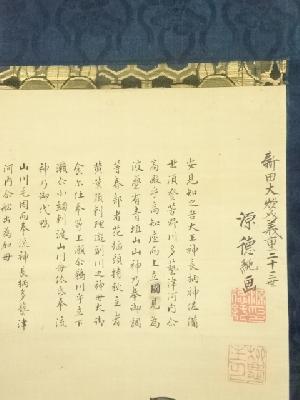 新田大炊義重二十三世
源徳純画
安見知之吾大王神長柄神佐備
世須登芳野川多藝津河内尓
高殿乎高知座而上立國見為
波疊有青垣山山神乃奉御調
等春部者花插頭持秋立者
黄葉頭刺理遊副川之神母大御
食尓仕奉等上瀬尓鵜川乎立下
瀬尓小網刺渡山川母依弖奉流
神乃御代鴨
山川毛因而奉流神長柄多藝津
河内尓船出為加母